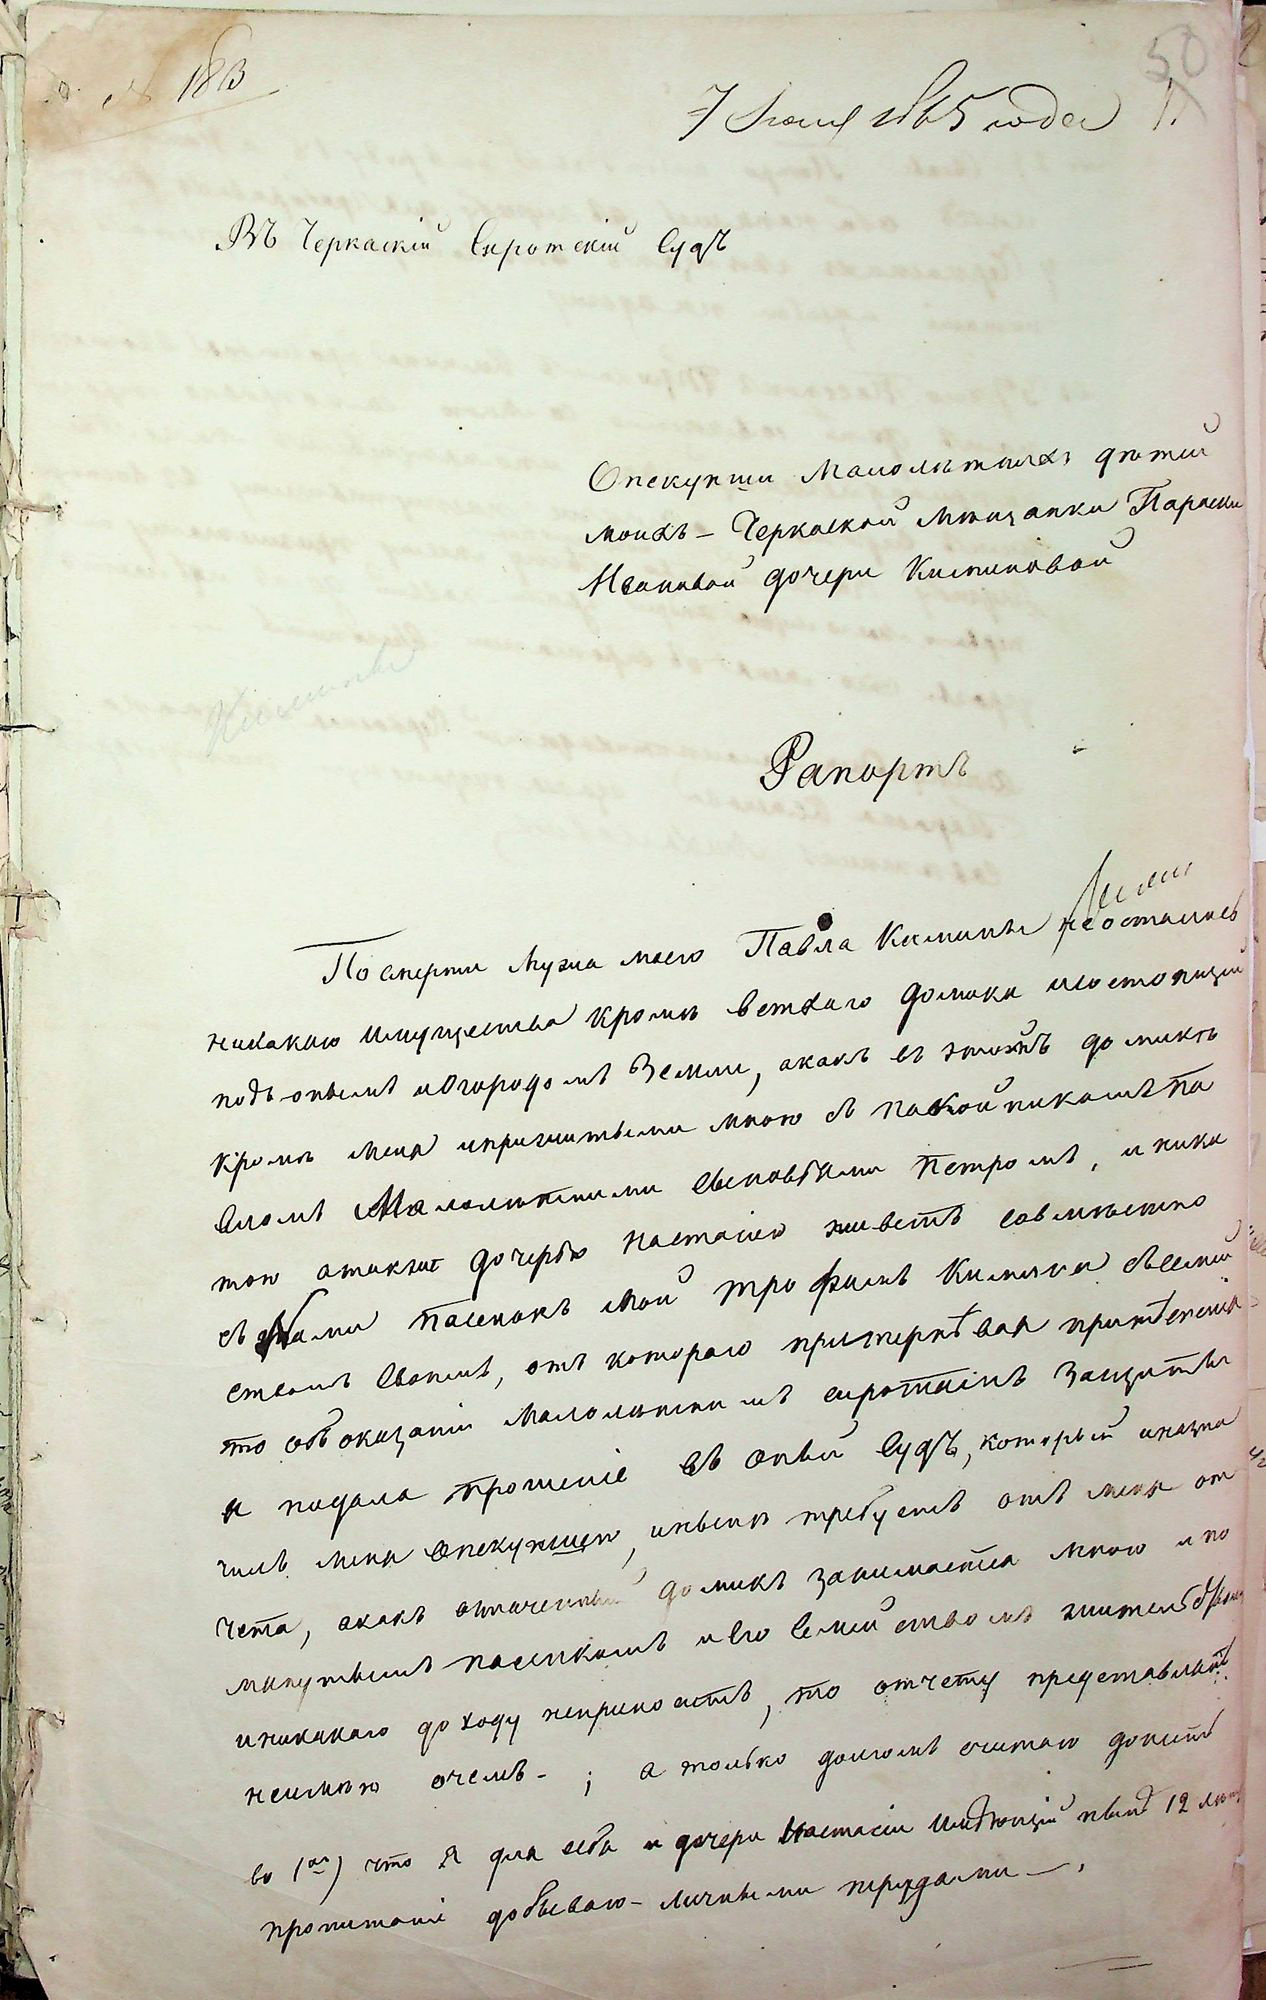 № 183
50
7 Июня 1865 года
Въ Черкаскій Сиротскій Судъ
Опекунши Малолѣтныхъ дѣтей
моихъ – Черкаской мѣщанки Параски
Ивановой дочери Климиковой
Рапортъ
По смерти Мужа моего Павла Климика неосталось
никакого имущества кромѣ ветхаго домика исостоящей
подъ онымъ иогородомъ Земли, акакъ въ этомъ домикѣ
кромѣ меня иприжитыми мною съ покойникомъ Па
вломъ Малолѣтними сыновьями Петромъ, и ники
тою атакже дочерью Настасіею живетъ совмѣстно
съ Нами пасенокъ мой Трофимъ Климикъ съсемей
ствомъ своимъ, отъ котораго притерпѣвая притѣсненія
то объ оказаніи Малолѣтнимъ сиротамъ Защиты
я подала прошеніе въ оный Судъ, который иназна
чилъ меня Опекуншею, инынѣ требуетъ отъ меня от
чета, акакъ означенный домикъ занимается мною ипо
мянутымъ пасенкомъ иего Семействомъ жительствомъ
иникакаго доходу неприноситъ, то отчету представлять
неимѣю очемъ – ; а только долгомъ считаю донесть
во 1хъ) что Я для себя и дочери Настасіи имѣющей нынѣ 12 лѣтъ
пропитаніе добываю – личными трудами – .